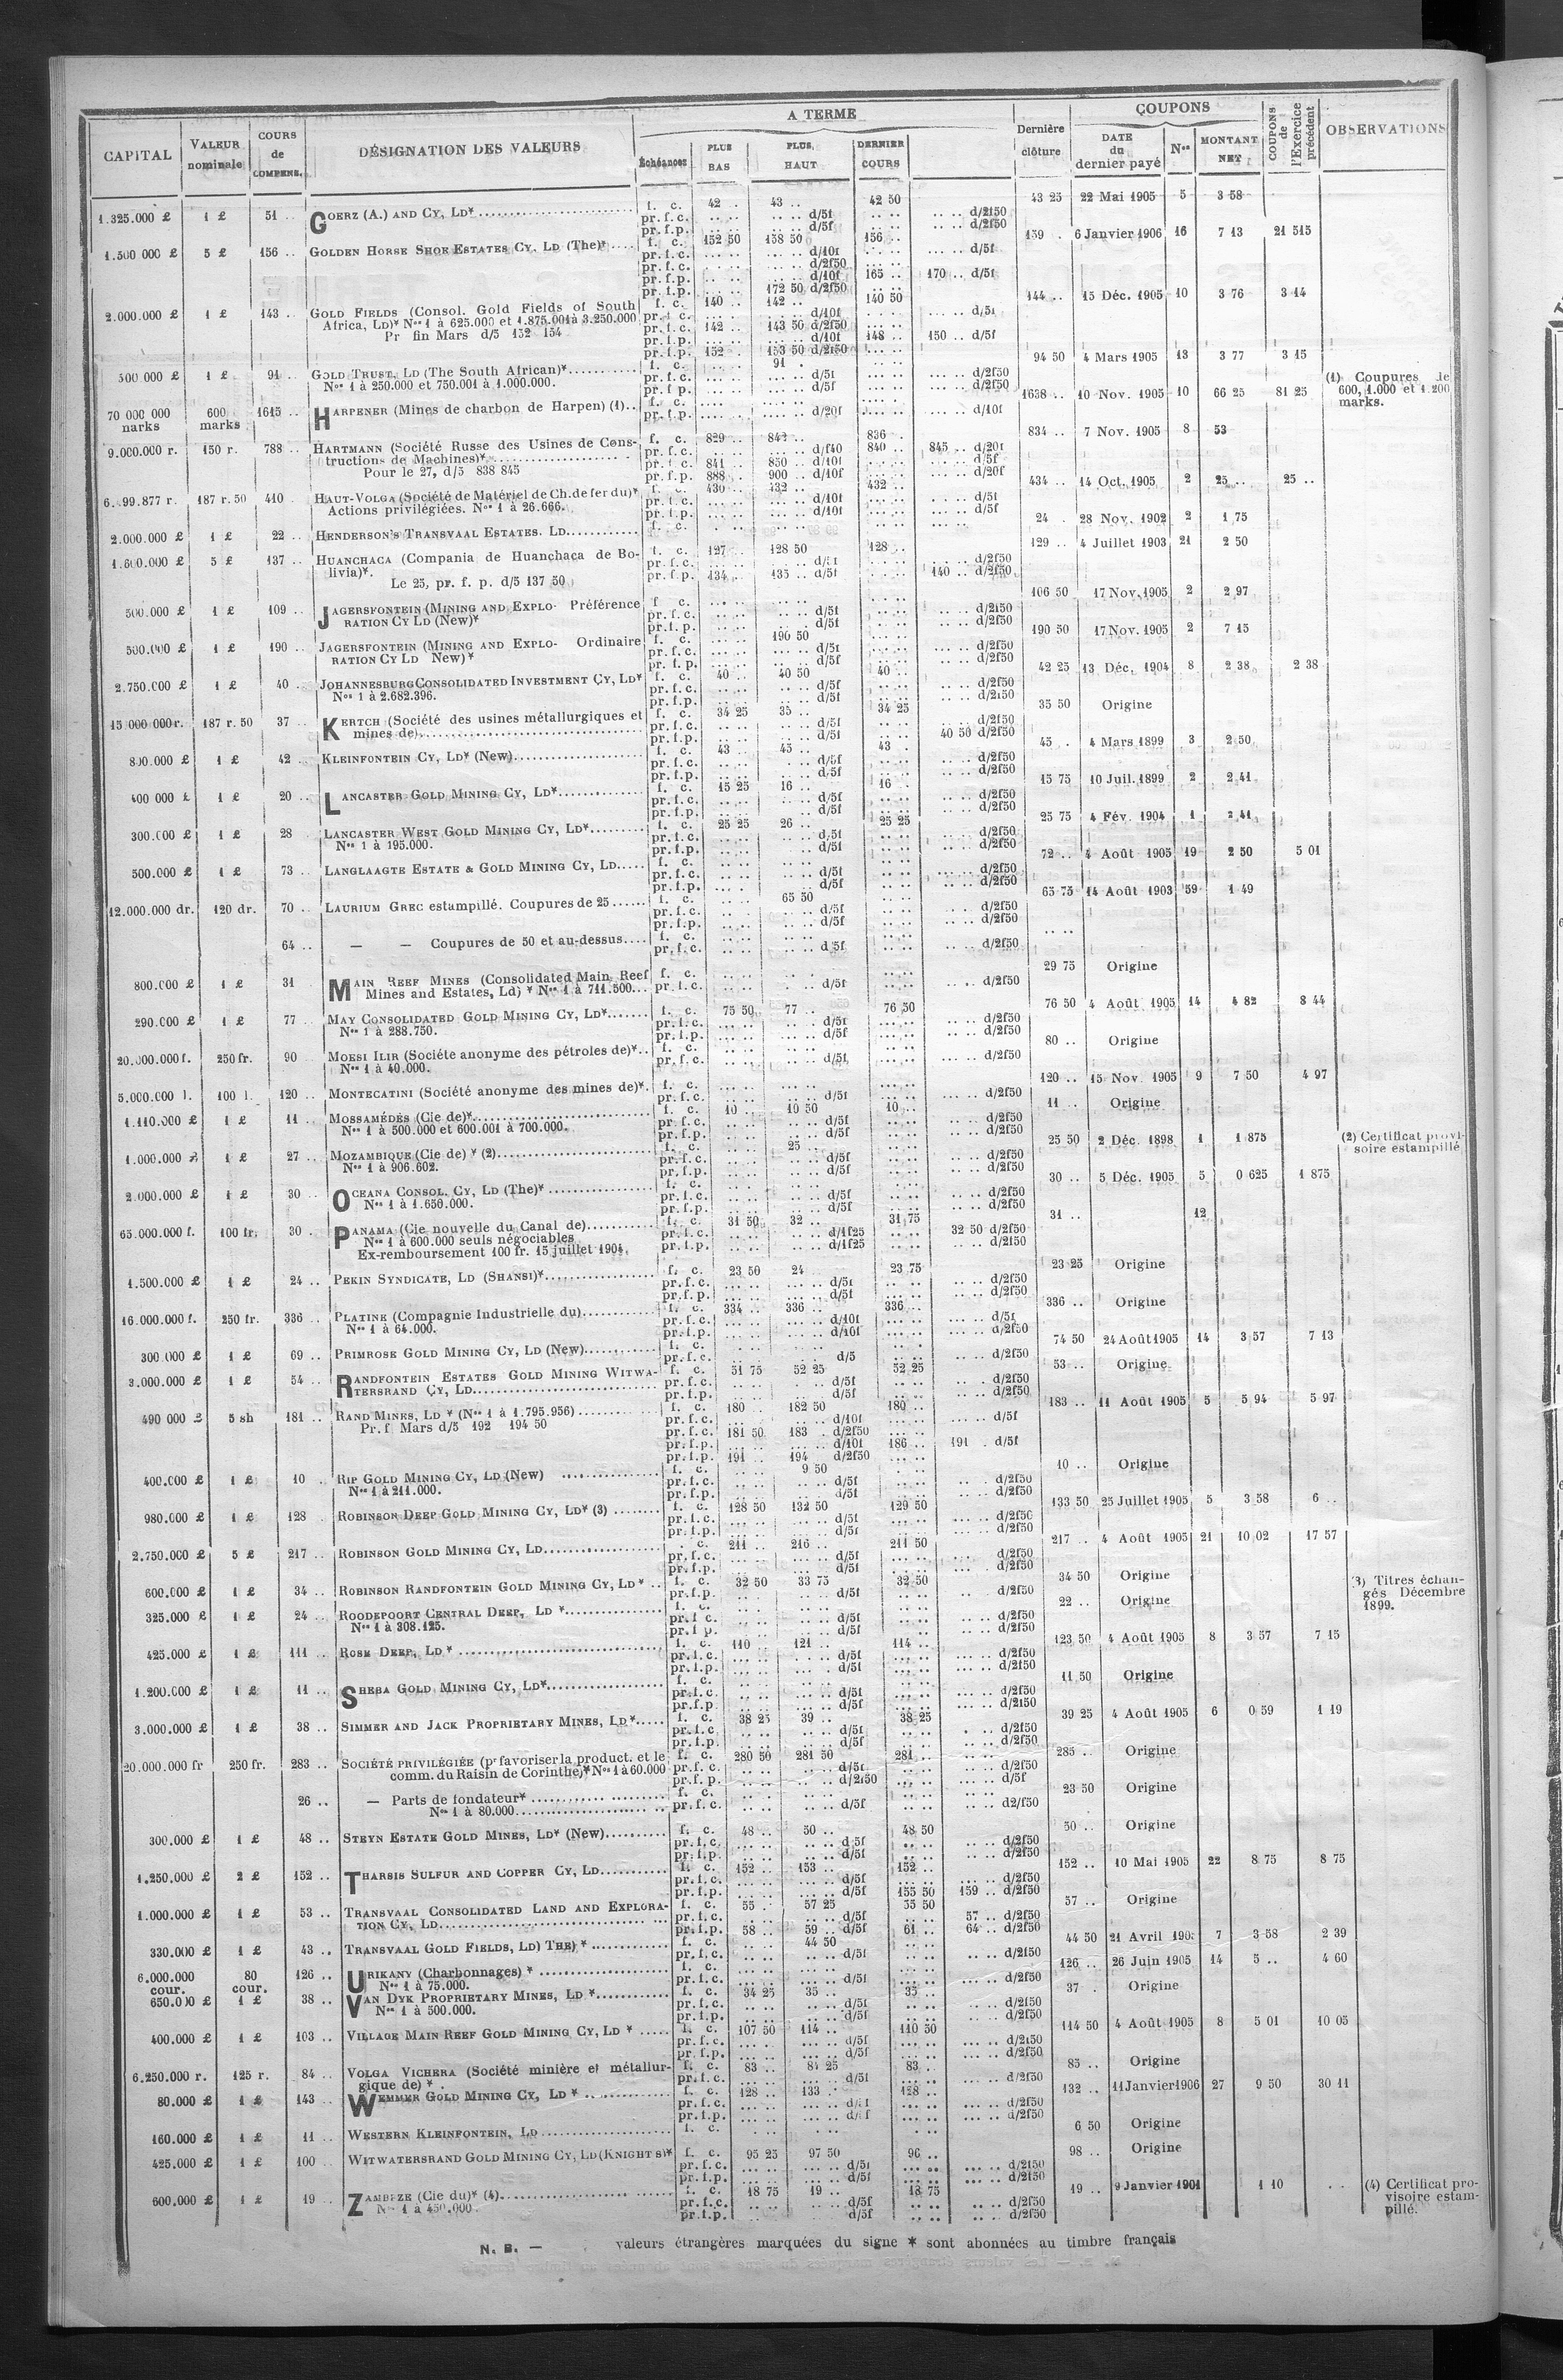 CAPITAL | VALEUR nominale | COURS de COMPENS. | DÉSIGNATION DES VALEURS | A TERME | Échéances | PLUS BAS | PLUS HAUT | DERNIER COURS | Dernière clôture | COUPONS | DATE du dernier payé | Nos | MONTANT NET | COUPONS de l'Exercice précédent | OBSERVATIONS
1.325.000 £ 1 £ 51 .. GOERZ (A.) AND CY, LD* f. c. 42 .. 43 .. 42 50 43 25 22 Mai 1905 5 3 58
pr. f. c. d/5f d/2f50
pr. f. p. d/5f d/2f50
1.500 000 £ 5 £ 156 .. GOLDEN HORSE SHOE ESTATES CY. LD (The)* f. c. 152 50 158 50 156 .. 159 . 6 Janvier 1906 16 7 13 21 515
pr. f. c. d/10f d/5f
pr. f. c. d/2f50
pr. f. p. d/10f 165 .. 170 .. d/5f
pr. f. p. 172 50 d/2f50
2.000.000 £ 1 £ 143 .. GOLD FIELDS (Consol. Gold Fields of South f. c. 140 .. 142 .. 140 50 144 .. 15 Déc. 1905 10 3 76 3 14
Africa, LD)* Nos 1 à 625.000 et 1.875.001 à 3.250.000 pr. f. c. d/10f d/5f
Pr fin Mars d/5 152 154 pr. f. c. 142 .. 143 50 d/2f50
pr. f. p. d/10f 148 .. 150 .. d/5f
pr. f. p. 152 . 153 50 d/2f50
500 000 £ 1 £ 91 .. GOLD TRUST, LD (The South African)* f. c. 91 . 94 50 4 Mars 1905 13 3 77 3 15
Nos 1 à 250.000 et 750.001 à 1.000.000. pr. f. c. d/5f d/2f50
pr. f. p. d/5f d/2f50
70 000 000 marks 600 marks 1615 .. HARPENER (Mines de charbon de Harpen) (1).. f. c. 1638 .. 10 Nov. 1905 10 66 25 81 25 (1) Coupures de 600, 1.000 et 1.200 marks.
pr. f. p. d/20f d/10f
9.000.000 r. 150 r. 788 .. HARTMANN (Société Russe des Usines de Cons- f. c. 829 .. 842 .. 836 . 834 .. 7 Nov. 1905 8 53
tructions de Machines)* pr. f. c. d/f40 840 .. 845 .. d/20f
Pour le 27, d/5 838 845 pr. f. c. 841 .. 850 .. d/10f d/5f
pr. f. p. 888 . 900 .. d/10f d/20f
187 r. 50 410 HAUT-VOLGA (Société de Matériel de Ch. de fer du)* f. c. 430 .. 432 .. 432 .. 434 .. 14 Oct. 1905 2 25 .. 25 ..
Actions privilégiées. Nos 1 à 26.666. pr. f. c. d/10f d/5f
pr. f. p. d/10f d/5f
2.000.000 £ 1 £ 22 .. HENDERSON'S TRANSVAAL ESTATES. LD f. c. 24 . 28 Nov. 1902 2 1 75
1.600.000 £ 5 £ 137 .. HUANCHACA (Compania de Huanchaca de Bo- f. c. 127 .. 128 50 128 .. 129 .. 4 Juillet 1903 21 2 50
livia)*. pr. f. c. d/5f d/2f50
Le 25, pr. f. p. d/5 137 50 pr. f. p. 134 .. 135 .. d/5f 140 .. d/2f50
500.000 £ 1 £ 109 .. JAGERSFONTEIN (MINING AND EXPLO- Préférence f. c. 106 50 17 Nov. 1905 2 2 97
RATION CY LD (New)* pr. f. c. d/5f d/2f50
pr. f. p. d/5f d/2f50
500.000 £ 1 £ 190 .. JAGERSFONTEIN (MINING AND EXPLO- Ordinaire f. c. 190 50 190 50 17 Nov. 1905 2 7 15
RATION CY LD New)* pr. f. c. d/5f d/2f50
pr. f. p. d/5f d/2f50
2.750.000 £ 1 £ 40 .. JOHANNESBURG CONSOLIDATED INVESTMENT CY, LD* f. c. 40 .. 40 50 40 .. 42 25 13 Déc. 1904 8 2 38 2 38
Nos 1 à 2.682.396. pr. f. c. d/5f d/2f50
pr. f. p. d/5f d/2f50
15 000 000 r. 187 r. 50 37 .. KERTCH (Société des usines métallurgiques et f. c. 34 25 35 .. 34 25 35 50 Origine
mines de) pr. f. c. d/5f d/2f50
pr. f. p. d/5f 40 50 d/2f50
800.000 £ 1 £ 42 .. KLEINFONTEIN CY, LD* (New) f. c. 43 .. 45 .. 43 . 45 . 4 Mars 1899 3 2 50
pr. f. c. d/5f d/2f50
pr. f. p. d/5f d/2f50
400 000 £ 1 £ 20 .. LANCASTER GOLD MINING CY, LD* f. c. 15 25 16 .. 16 . 15 75 10 Juil. 1899 2 2 41
pr. f. c. d/5f d/2f50
pr. f. p. d/5f d/2f50
300.000 £ 1 £ 28 LANCASTER WEST GOLD MINING CY, LD* f. c. 25 25 26 .. 25 25 25 75 4 Fév. 1904 1 2 41
Nos 1 à 195.000. pr. f. c. d/5f d/2f50
pr. f. p. d/5f d/2f50
500.000 £ 1 £ 73 .. LANGLAAGTE ESTATE & GOLD MINING CY, LD f. c. 72 .. 4 Août 1905 19 2 50 5 01
pr. f. c. d/5f d/2f50
pr. f. p. d/5f d/2f50
12.000.000 dr. 120 dr. 70 .. LAURIUM GREC estampillé. Coupures de 25 f. c. 65 50 65 75 14 Août 1903 59 1 49
pr. f. c. d/5f d/2f50
pr. f. p. d/5f d/2f50
64 .. — — Coupures de 50 et au-dessus f. c. .. ..
pr. f. c. d/5f d/2f50
800.000 £ 1 £ 31 MAIN REEF MINES (Consolidated Main Reef f. c. 29 75 Origine
Mines and Estates, Ld) * Nos 1 à 711.500 pr. f. c. d/5f d/2f50
290.000 £ 1 £ 77 .. MAY CONSOLIDATED GOLD MINING CY, LD* f. c. 75 50 77 .. 76 50 76 50 4 Août 1905 14 4 82 8 44
Nos 1 à 288.750. pr. f. c. d/5f d/2f50
pr. f. p. d/5f d/2f50
20.000.000 f. 250 fr. 90 .. MOESI ILIR (Société anonyme des pétroles de)* f. c. 80 .. Origine
Nos 1 à 40.000. pr. f. c. d/5f d/2f50
5.000.000 l. 100 l. 120 .. MONTECATINI (Société anonyme des mines de)* f. c. 120 .. 15 Nov. 1905 9 7 50 4 97
pr. f. c. d/5f d/2f50
1.110.000 £ 1 £ 11 .. MOSSAMÉDÈS (Cie de)* f. c. 10 .. 10 50 10 .. 11 .. Origine
Nos 1 à 500.000 et 600.001 à 700.000. pr. f. c. d/5f d/2f50
pr. f. p. d/5f d/2f50
1.000.000 £ 1 £ 27 .. MOZAMBIQUE (Cie de) * (2) f. c. 25 .. 25 50 2 Déc. 1898 1 1 875 (2) Certificat provisoire estampillé
Nos 1 à 906.602. pr. f. c. d/5f d/2f50
pr. f. p. d/5f d/2f50
2.000.000 £ 1 £ 30 .. OCEANA CONSOL. CY, LD (The)* f. c. 30 .. 5 Déc. 1905 5 0 625 1 875
Nos 1 à 1.650.000. pr. f. c. d/5f d/2f50
pr. f. p. d/5f d/2f50
65.000.000 f. 100 fr. 30 . PANAMA (Cie nouvelle du Canal de) f. c. 31 50 32 .. 31 75 31 .. 12
Nos 1 à 600.000 seuls négociables pr. f. c. d/1f25 32 50 d/2f50
Ex-remboursement 100 fr. 15 juillet 1904. pr. f. p. d/1f25 d/2f50
1.500.000 £ 1 £ 24 .. PEKIN SYNDICATE, LD (SHANSI)* f. c. 23 50 24 23 75 23 25 Origine
pr. f. c. d/5f d/2f50
pr. f. p. d/5f d/2f50
16.000.000 f. 250 fr. 336 .. PLATINE (Compagnie Industrielle du) f. c. 334 .. 336 .. 336 .. 336 .. Origine
Nos 1 à 64.000. pr. f. c. d/10f d/5f
pr. f. p. d/10f d/2f50
300.000 £ 1 £ 69 .. PRIMROSE GOLD MINING CY, LD (New) f. c. 74 50 24 Août 1905 14 3 57 7 13
pr. f. c. d/5 d/2f50
3.000.000 £ 1 £ 54 .. RANDFONTEIN ESTATES GOLD MINING WITWA- f. c. 51 75 52 25 52 25 53 .. Origine
TERSRAND CY, LD pr. f. c. d/5f d/2f50
pr. f. p. d/5f d/2f50
490 000 £ 5 sh 181 .. RAND MINES, LD * (Nos 1 à 1.795.956) f. c. 180 .. 182 50 180 .. 183 .. 11 Août 1905 5 5 94 5 97
Pr. f Mars d/5 192 194 50 pr. f. c. d/10f d/5f
pr. f. c. 181 50 183 . d/2f50
pr. f. p. d/10f 186 .. 191 . d/5f
pr. f. p. 191 .. 194 d/2f50
400.000 £ 1 £ 10 .. RIP GOLD MINING CY, LD (New) f. c. 9 50 10 .. Origine
Nos 1 à 211.000. pr. f. c. d/5f d/2f50
pr. f. p. d/5f d/2f50
980.000 £ 1 £ 128 . ROBINSON DEEP GOLD MINING CY, LD* (3) f. c. 128 50 132 50 129 50 133 50 25 Juillet 1905 5 3 58 6 ..
pr. f. c. d/5f d/2f50
pr. f. p. d/5f d/2f50
2.750.000 £ 5 £ 217 .. ROBINSON GOLD MINING CY, LD . c. 211 .. 216 .. 211 50 217 .. 4 Août 1905 21 10 02 17 57
pr. f. c. d/5f d/2f50
pr. f. p. d/5f d/2f50
600.000 £ 1 £ 34 .. ROBINSON RANDFONTEIN GOLD MINING CY, LD* f. c. 32 50 33 75 32 50 34 50 Origine (3) Titres échangés Décembre 1899.
pr. f. p. d/5f d/2f50
325.000 £ 1 £ 24 .. ROODEPOORT CENTRAL DEEP, LD * f. c. 22 .. Origine
Nos 1 à 308.125. pr. f. c. d/5f d/2f50
pr. f. p. d/5f d/2f50
425.000 £ 1 £ 111 .. ROSE DEEP, LD * f. c. 110 121 .. 114 .. 123 50 4 Août 1905 8 3 57 7 15
pr. f. c. d/5f d/2f50
pr. f. p. d/5f d/2f50
1.200.000 £ 1 £ 11 .. SHEBA GOLD MINING CY, LD* f. c. 11 50 Origine
pr. f. c. d/5f d/2f50
pr. f. p. d/5f d/2f50
3.000.000 £ 1 £ 38 .. SIMMER AND JACK PROPRIETARY MINES, LD* f. c. 38 25 39 .. 38 25 39 25 4 Août 1905 6 0 59 1 19
pr. f. c. d/5f d/2f50
pr. f. p. d/5f d/2f50
20.000.000 fr 250 fr. 283 .. SOCIÉTÉ PRIVILÉGIÉE (pr favoriser la product. et le f. c. 280 50 281 50 281 .. 285 .. Origine
comm. du Raisin de Corinthe)* Nos 1 à 60.000 pr. f. c. d/5f d/2f50
pr. f. p. d/2f50 d/5f
26 .. — Parts de fondateur* f. c. 23 50 Origine
Nos 1 à 80.000 pr. f. c. d/5f d2/f50
300.000 £ 1 £ 48 .. STEYN ESTATE GOLD MINES, LD* (New) f. c. 48 .. 50 .. 48 50 50 .. Origine
pr. f. c. d/5f d/2f50
pr. f. p. d/5f d/2f50
1.250.000 £ 2 £ 152 .. THARSIS SULFUR AND COPPER CY, LD f. c. 152 .. 153 .. 152 .. 152 .. 10 Mai 1905 22 8 75 8 75
pr. f. c. d/5f d/2f50
pr. f. p. d/5f 155 50 159 .. d/2f50
1.000.000 £ 1 £ 53 .. TRANSVAAL CONSOLIDATED LAND AND EXPLORA- f. c. 55 . 57 25 55 50 57 .. Origine
TION CY, LD pr. f. c. d/5f 57 .. d/2f50
pr. f. p. 58 .. 59 .. d/5f 61 .. 64 .. d/2f50
330.000 £ 1 £ 43 .. TRANSVAAL GOLD FIELDS, LD) THE) * f. c. 44 50 44 50 21 Avril 7 3 58 2 39
pr. f. c. d/5f d/2f50
6.000.000 cour. 80 cour. 126 .. URIKANY (Charbonnages) * f. c. 126 .. 26 Juin 1905 14 5 .. 4 60
Nos 1 à 75.000. pr. f. c. d/5f d/2f50
650.000 £ 1 £ 38 .. VAN DYK PROPRIETARY MINES, LD * f. c. 34 25 35 .. 35 .. 37 . Origine
Nos 1 à 500.000. pr. f. c. d/5f d/2f50
pr. f. p. d/5f d/2f50
400.000 £ 1 £ 103 .. VILLAGE MAIN REEF GOLD MINING CY, LD * f. c. 107 50 114 .. 110 50 114 50 4 Août 1905 8 5 01 10 05
pr. f. c. d/5f d/2f50
pr. f. p. d/5f d/2f50
6.250.000 r. 125 r. 84 .. VOLGA VICHERA (Société minière et métallur- f. c. 83 .. 84 25 83 .. 85 .. Origine
gique de) * . pr. f. c. d/5f d/2f50
80.000 £ 1 £ 143 .. WEMMER GOLD MINING CY, LD * f. c. 128 .. 133 . 128 .. 132 .. 11 Janvier 1906 27 9 50 30 11
pr. f. c. d/5f d/2f50
pr. f. p. d/5f d/2f50
160.000 £ 1 £ 11 .. WESTERN KLEINFONTEIN, LD f. c. 6 50 Origine
425.000 £ 1 £ 100 .. WITWATERSRAND GOLD MINING CY, LD (KNIGHT S)* f. c. 95 25 97 50 96 .. 98 .. Origine
pr. f. c. d/5f d/2f50
pr. f. p. d/5f d/2f50
600.000 £ 1 £ 19 .. ZAMBÈZE (Cie du)* (4) f. c. 18 75 19 .. 18 75 19 .. 9 Janvier 1901 1 10 (4) Certificat provisoire estampillé.
Nos 1 à 450.000 pr. f. c. d/5f d/2f50
pr. f. p. d/5f d/2f50
N. B. — valeurs étrangères marquées du signe * sont abonnées au timbre français